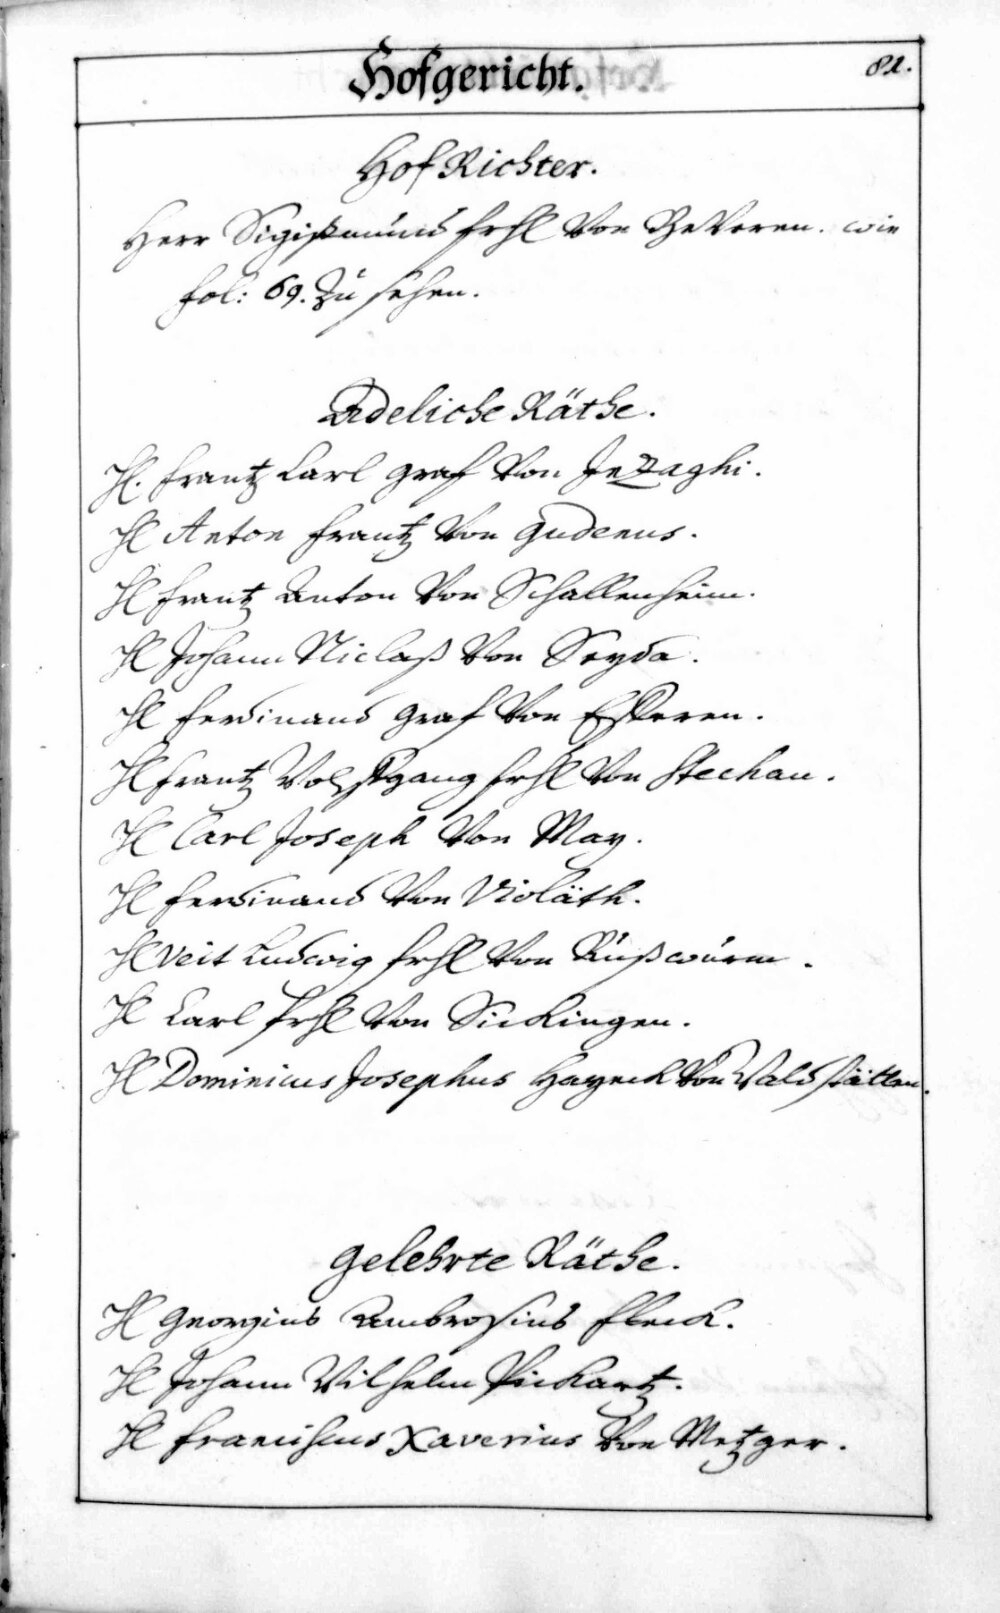 Hofgericht. 81.
Hof Richter.
Herr Sigißmund frhl Von BeVeren. wie
fol: 69. Zu sehen.
Adeliche Räthe.
Hl. frantz Carl graf Von Jezaghi.
Hl Anton frantz Von gudenus.
Hl frantz Anton Von Schallenheim.
Hl Johann Niclaß Von Seyda.
Hl ferdinand graf Von Efferen.
Hl frantz Volffgang frhl Von Stechau.
Hl Carl Joseph Von May.
Hl ferdinand Von Violäth.
Hl Veit Ludwig frhl Von Rußwurm.
Hl Carl frhl Von Sickingen.
Hl Dominicus Josephus Hayeck Von Waldstätten.
gelehrte Räthe.
Hl georgius Ambrosius fleck.
Hl Johann Wilhelm Pickartz.
Hl franciscus Xaverius Von Metzger.